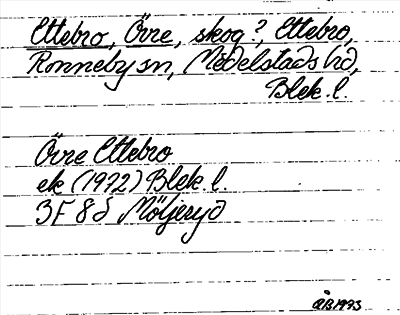 Ettebro, Övre, skog?, Ettebro,
Ronneby sn, Medelstads hd,
Blek. l.
Övre Ettebro
ek (1972) Blek. l.
3F 8d Möljeryd
ÅB 1973